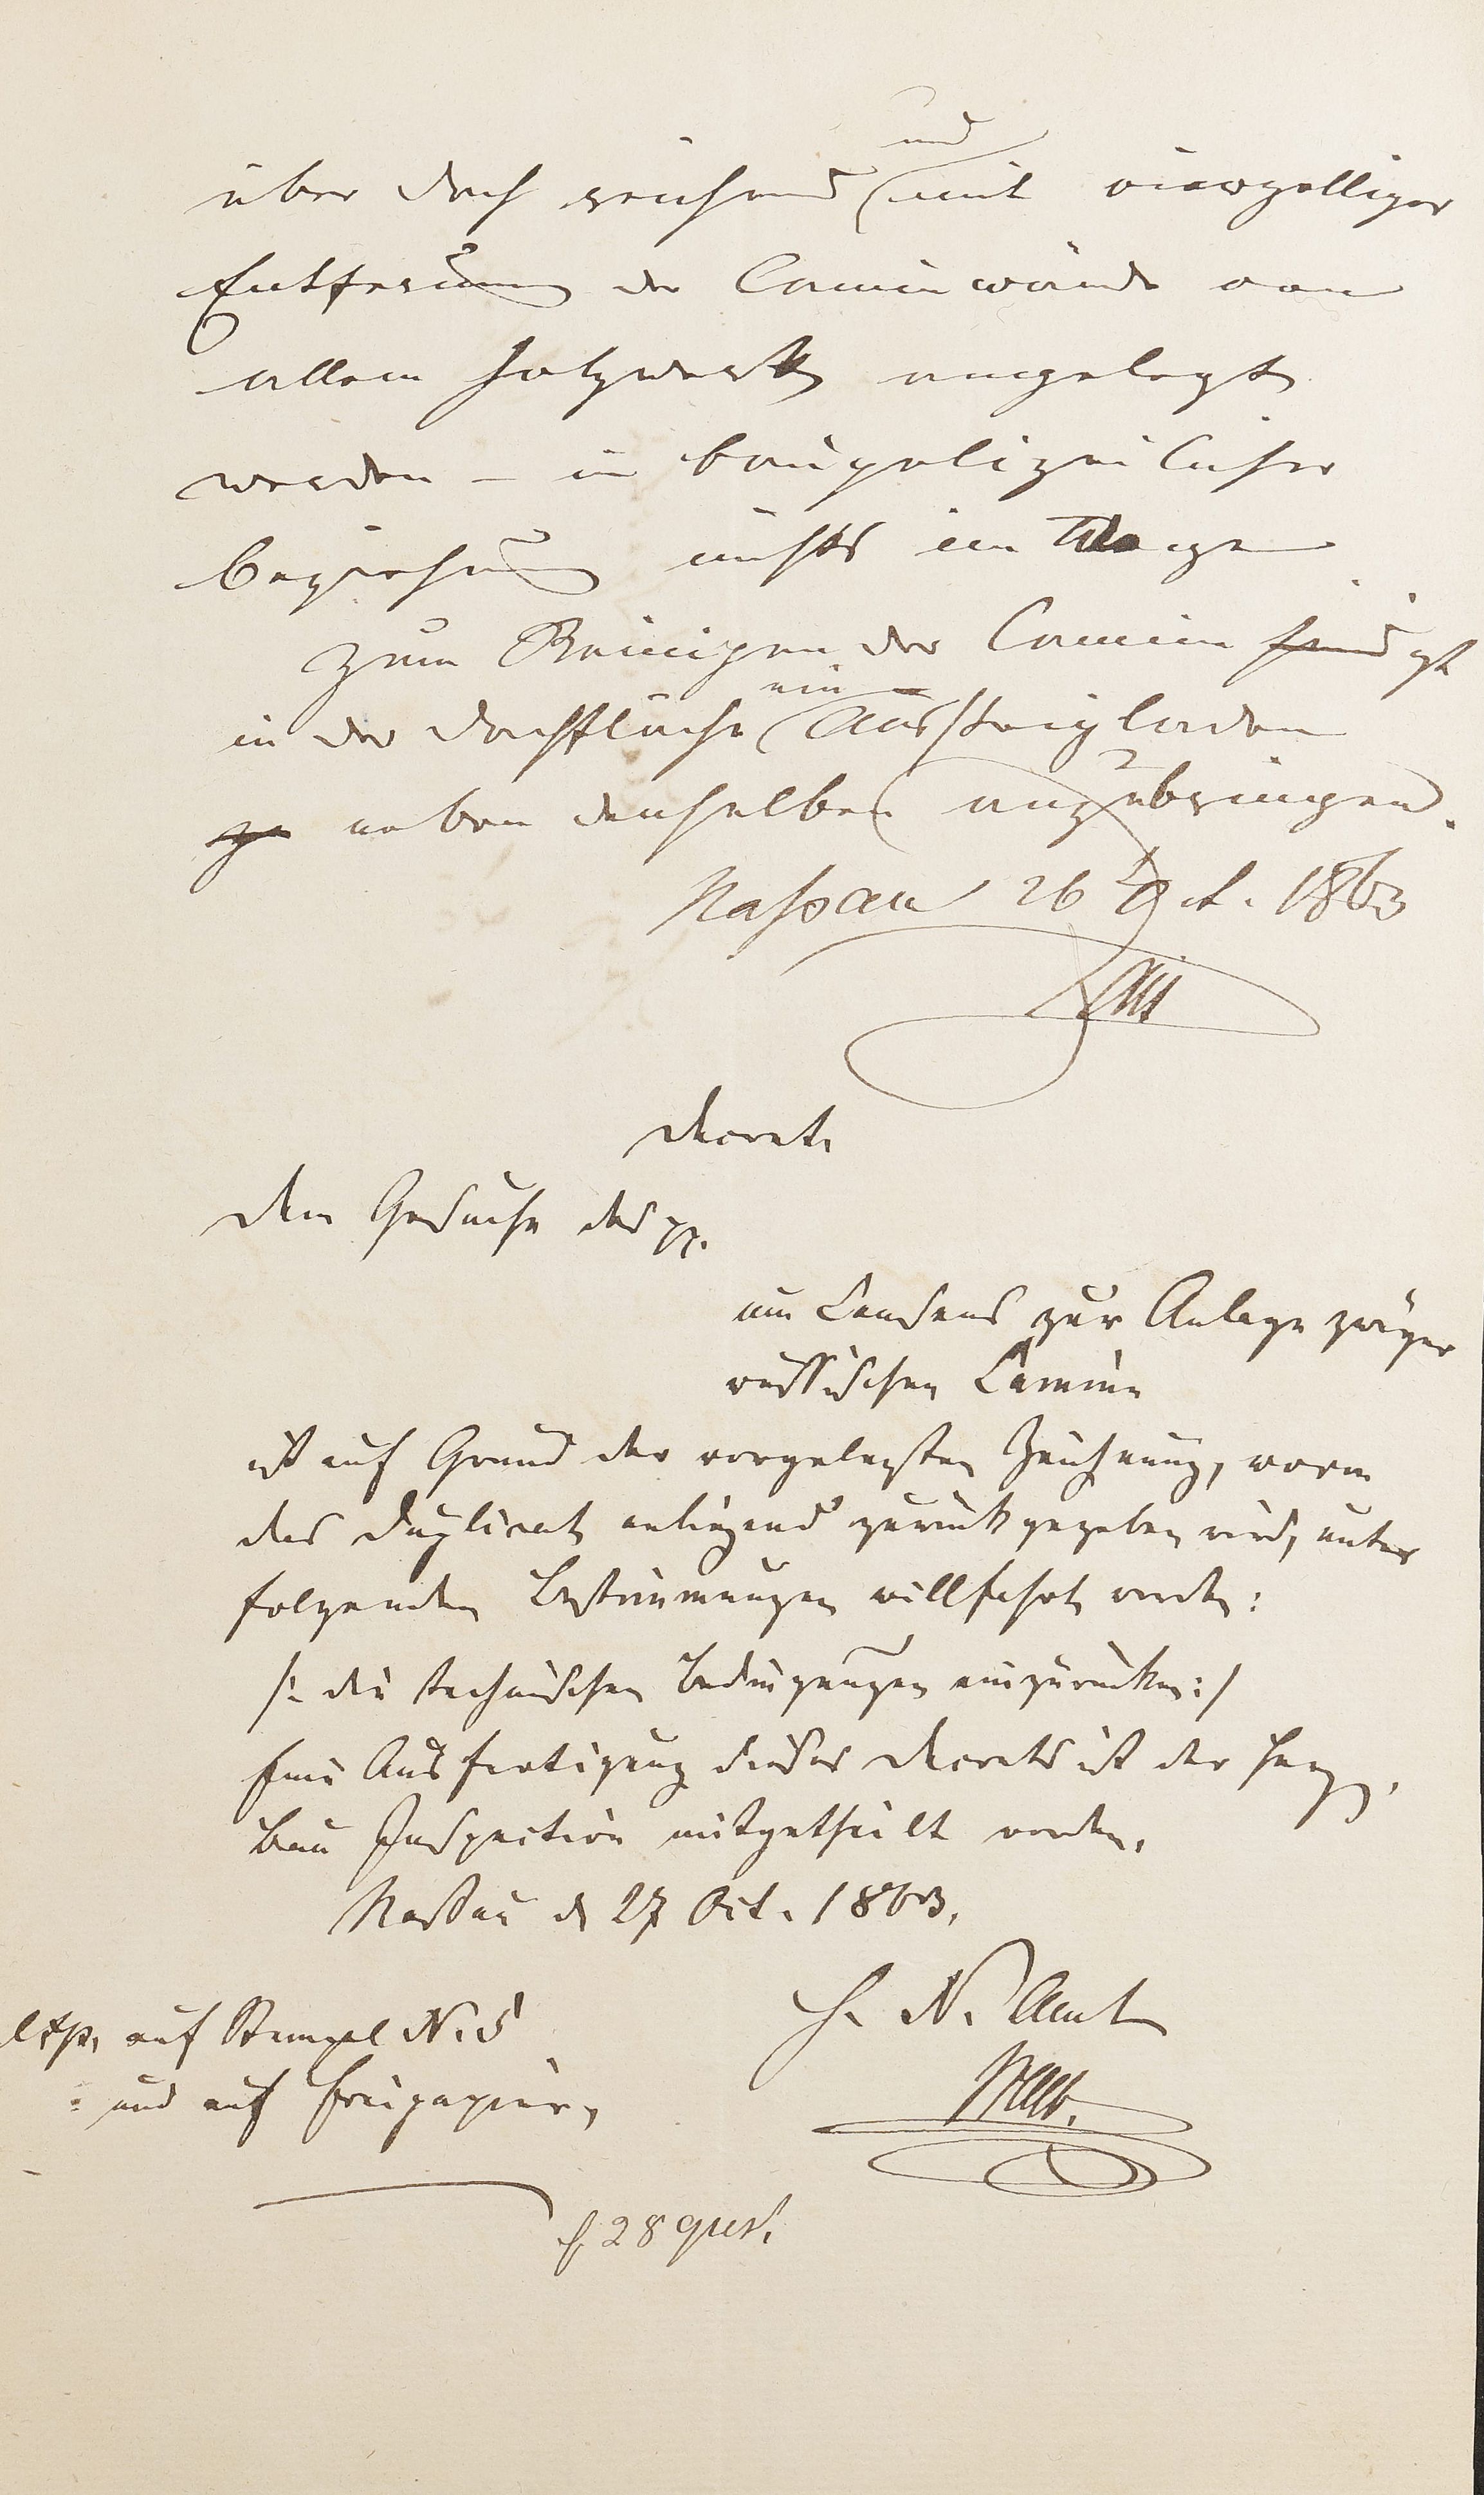 über Dach reichend und mit vierzölliger
Entfernung der Caminwände von
allem Holzwerk angelegt
werden – in baupolizeilicher
Beziehung nichts im Wege
Zum Reinigen der Camine sind ist
in der Dachfläche ein Aussteigladen
zu neben denselben anzubringen.
Nassau 26 Oct. 1863
Decret.
Dem Gesuche des pp.
um Consens zur Anlage zweyer
russischen Camine
ist auf Grund der vorgelegten Zeichnung, wovon
das Duplicat anliegend zurückgegeben wird, unter
folgenden Bestimmungen willfahrt worden:
/: die technischen Bedingungen einzurücken :/
Eine Ausfertigung dieses Decrets ist der Herzg.
Bau Inspection mitgetheilt worden.
Nassau d 27 Oct. 1863.
H. N. Amt
auf Stempel N. 5
und auf Freipapier,
28